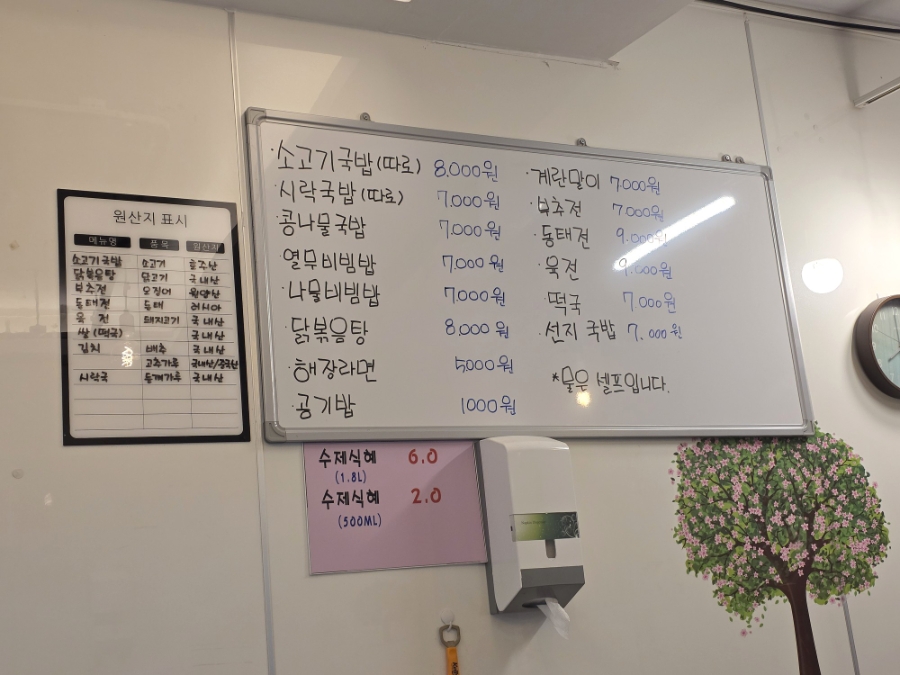 원산지 표시
메뉴명 품목 원산지
소고기국밥 소고기 호주산
닭볶음탕 닭고기 국내산
부추전 오징어 원양산
동태전 동태 러시아
육 전 돼지고기 국내산
쌀(떡국) 국내산
김치 배추 국내산
고추가루 국내산/중국산
시락국 들깨가루 국내산
·소고기국밥(따로) 8,000원
·시락국밥(따로) 7,000원
콩나물국밥 7,000원
열무비빔밥 7,000원
·나물비빔밥 7,000원
·닭볶음탕 8,000원
·해장라면 5,000원
·공기밥 1000원
·계란말이 7,000원
·부추전 7,000원
·동태전 9,000원
·육전 9,000원
·떡국 7,000원
·선지국밥 7,000원
*물은 셀프입니다.
수제식혜 6.0
(1.8L)
수제식혜 2.0
(500ML)